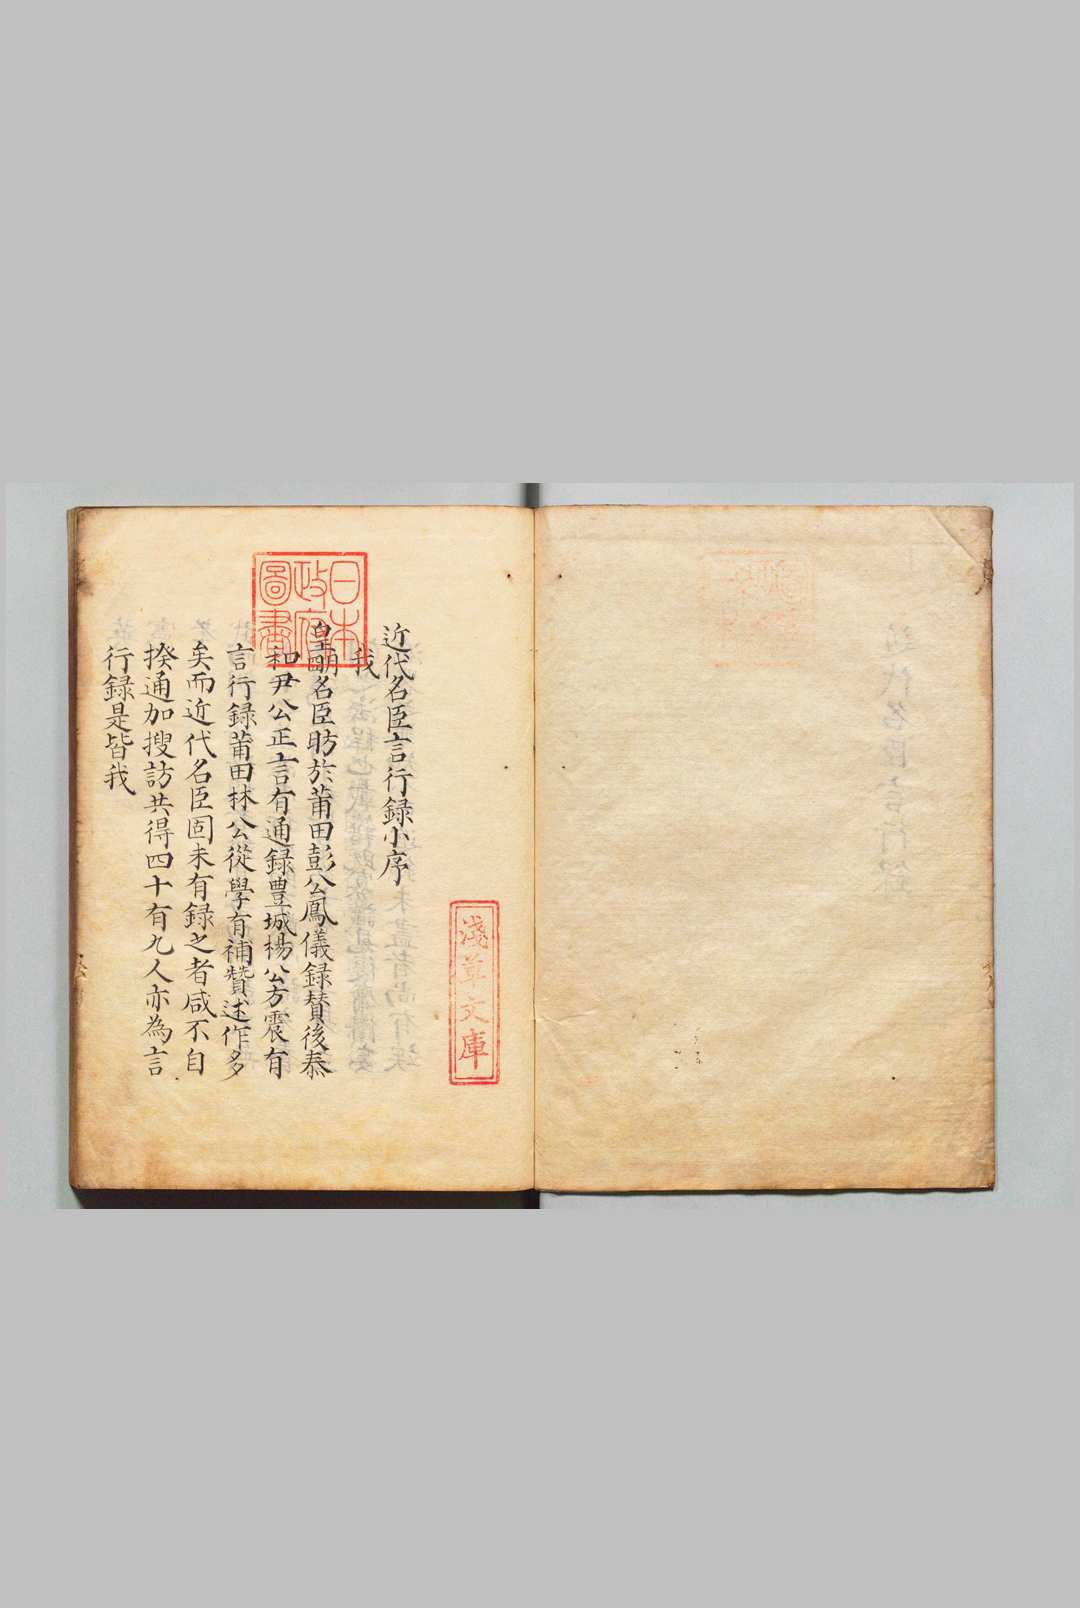 近代名臣言行録小序
我
皇明名臣昉於莆田彭公鳳儀録賛後泰
和尹公正言有通録豊城楊公方震有
言行録莆田林公從學有補賛述作多
矣而近代名臣固未有録之者咸不自
揆通加搜訪共得四十有九人亦為言
行録是皆我
日本
政府
圖書
淺草文庫